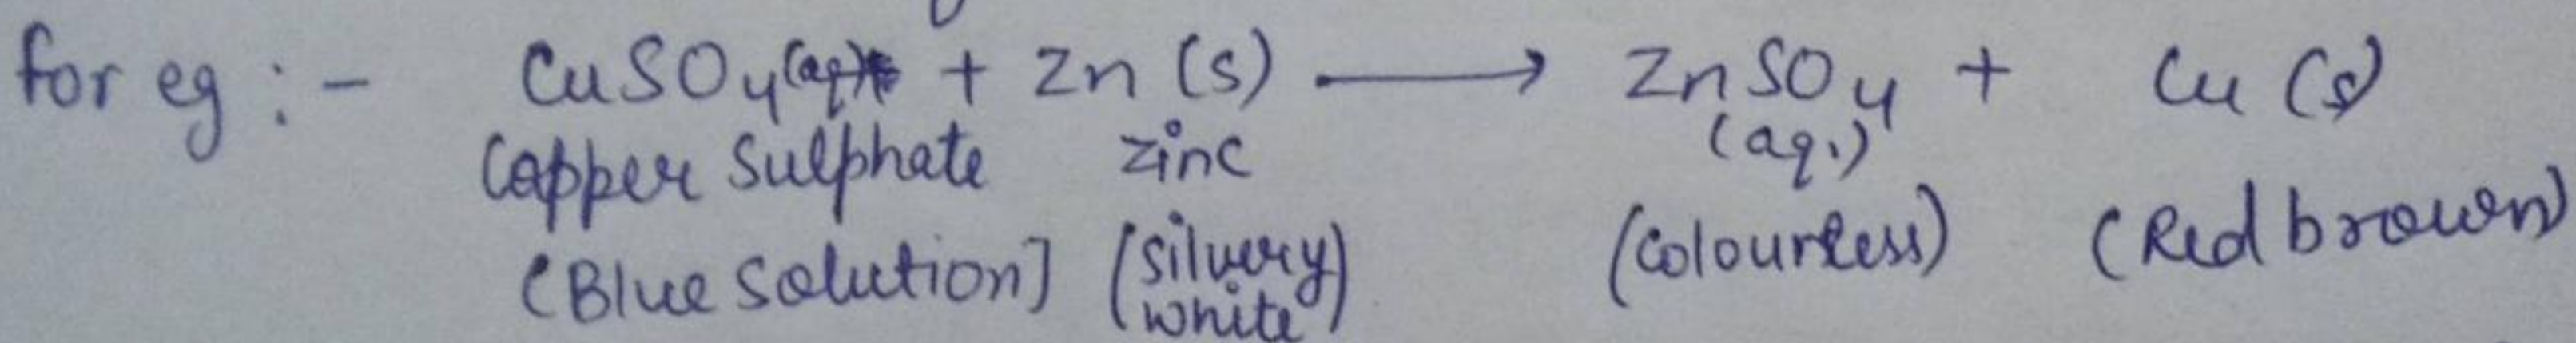 for eg :- CuSO4(aq) + Zn (s) ⟶ ZnSO4 + Cu (s)
Copper Sulphate zinc (aq.)
(Blue Solution] (silvery white) (colourless) (Red brown)